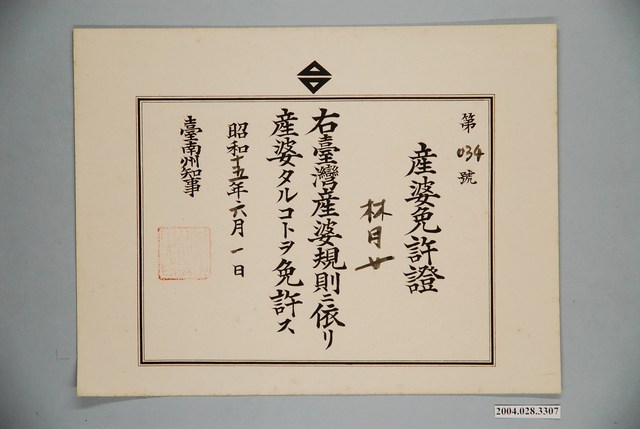 第034號
産婆免許證
林月女
右臺灣産婆規則ニ依リ
産婆タルコトヲ免許ス
昭和十五年六月一日
臺南州知事
2004.028.3307